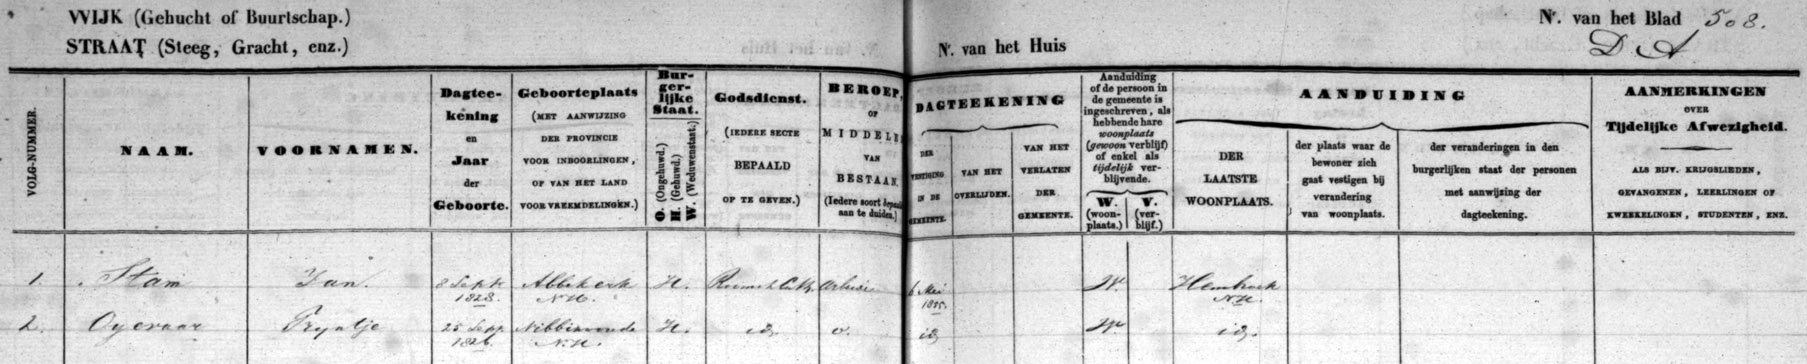 WIJK (Gehucht of Buurtschap.)
STRAAT (Steeg, Gracht, enz.)
Nr. van het Huis
Nr. van het Blad 508.
D A
VOLG-NUMMER.
NAAM.
VOORNAMEN.
Dagtee-
kening
en
Jaar
der
Geboorte.
Geboorteplaats
(MET AANWIJZING
DER PROVINCIE
VOOR INBOORLINGEN,
OF VAN HET LAND
VOOR VREEMDELINGEN.)
Bur-
ger-
lijke
Staat.
O. (Ongehuwd.)
H. (Gehuwd.)
W. (Weduwenstaat.)
Godsdienst.
(IEDERE SECTE
BEPAALD
OP TE GEVEN.)
BEROEP,
OF
MIDDELEN
VAN
BESTAAN.
(Iedere soort bepaald
aan te duiden.)
DAGTEEKENING
DER
VESTIGING
IN DE
GEMEENTE.
VAN HET
OVERLIJDEN.
VAN HET
VERLATEN
DER
GEMEENTE.
Aanduiding
of de persoon in
de gemeente is
ingeschreven, als
hebbende hare
woonplaats
(gewoon verblijf)
of enkel als
tijdelijk ver-
blijvende.
W.
(woon-
plaats.)
V.
(ver-
blijf.)
AANDUIDING
DER
LAATSTE
WOONPLAATS.
der plaats waar de
bewoner zich
gaat vestigen bij
verandering
van woonplaats.
der veranderingen in den
burgerlijken staat der personen
met aanwijzing der
dagteekening.
AANMERKINGEN
OVER
Tijdelijke Afwezigheid.
ALS BIJV. KRIJGSLIEDEN,
GEVANGENEN, LEERLINGEN OF
KWEEKELINGEN, STUDENTEN, ENZ.
1. Stam Jan. 8 Sept 1828. Abbekerk N.H. H. Roomsch Cath. 6 Mei 1855. W. N.H.
2. Oyevaar Pryntje 25 Sep 1826 N.H. H. id W id.